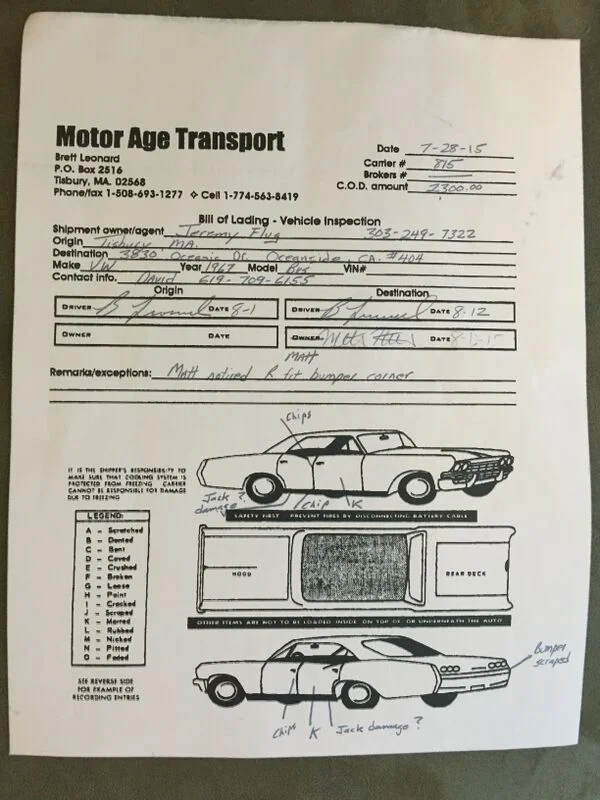 Motor Age Transport
Brett Leonard
P.O. Box 2516
Tisbury, MA. 02568
Phone/fax 1-508-693-1277 ✧ Cell 1-774-563-8419
Date 7-28-15
Carrier # 815
Brokers #
C.O.D. amount 2300.00
Bill of Lading - Vehicle Inspection
Shipment owner/agent Jeremy Flug 303-249-7322
Origin Tisbury MA.
Destination 3830 Oceanic Dr. Oceanside, CA. #404
Make VW Year 1967 Model Bus VIN#
Contact info. David 619-709-6155
Origin Destination
DRIVER DATE 8-1 DRIVER DATE 8-12
OWNER DATE OWNER DATE
MATT
Remarks/exceptions: Matt noticed R. fit bumper corner
chips
IT IS THE SHIPPER'S RESPONSIBILITY TO
MAKE SURE THAT COOLING SYSTEM IS
PROTECTED FROM FREEZING. CARRIER
CANNOT BE RESPONSIBLE FOR DAMAGE
DUE TO FREEZING
Jack ? chip K
damage
SAFETY FIRST - PREVENT FIRES BY DISCONNECTING BATTERY CABLE
LEGEND:
A - Scratched
B - Dented
C - Bent
D - Caved
E - Crushed
F - Broken
G - Loose
H - Paint
I - Cracked
J - Scraped
K - Marred
L - Rubbed
M - Nicked
N - Pitted
O - Faded
HOOD REAR DECK
OTHER ITEMS ARE NOT TO BE LOADED INSIDE ON TOP OF OR UNDERNEATH THE AUTO
SEE REVERSE SIDE
FOR EXAMPLE OF
RECORDING ENTRIES
Bumper
scraped
chips K Jack damage ?